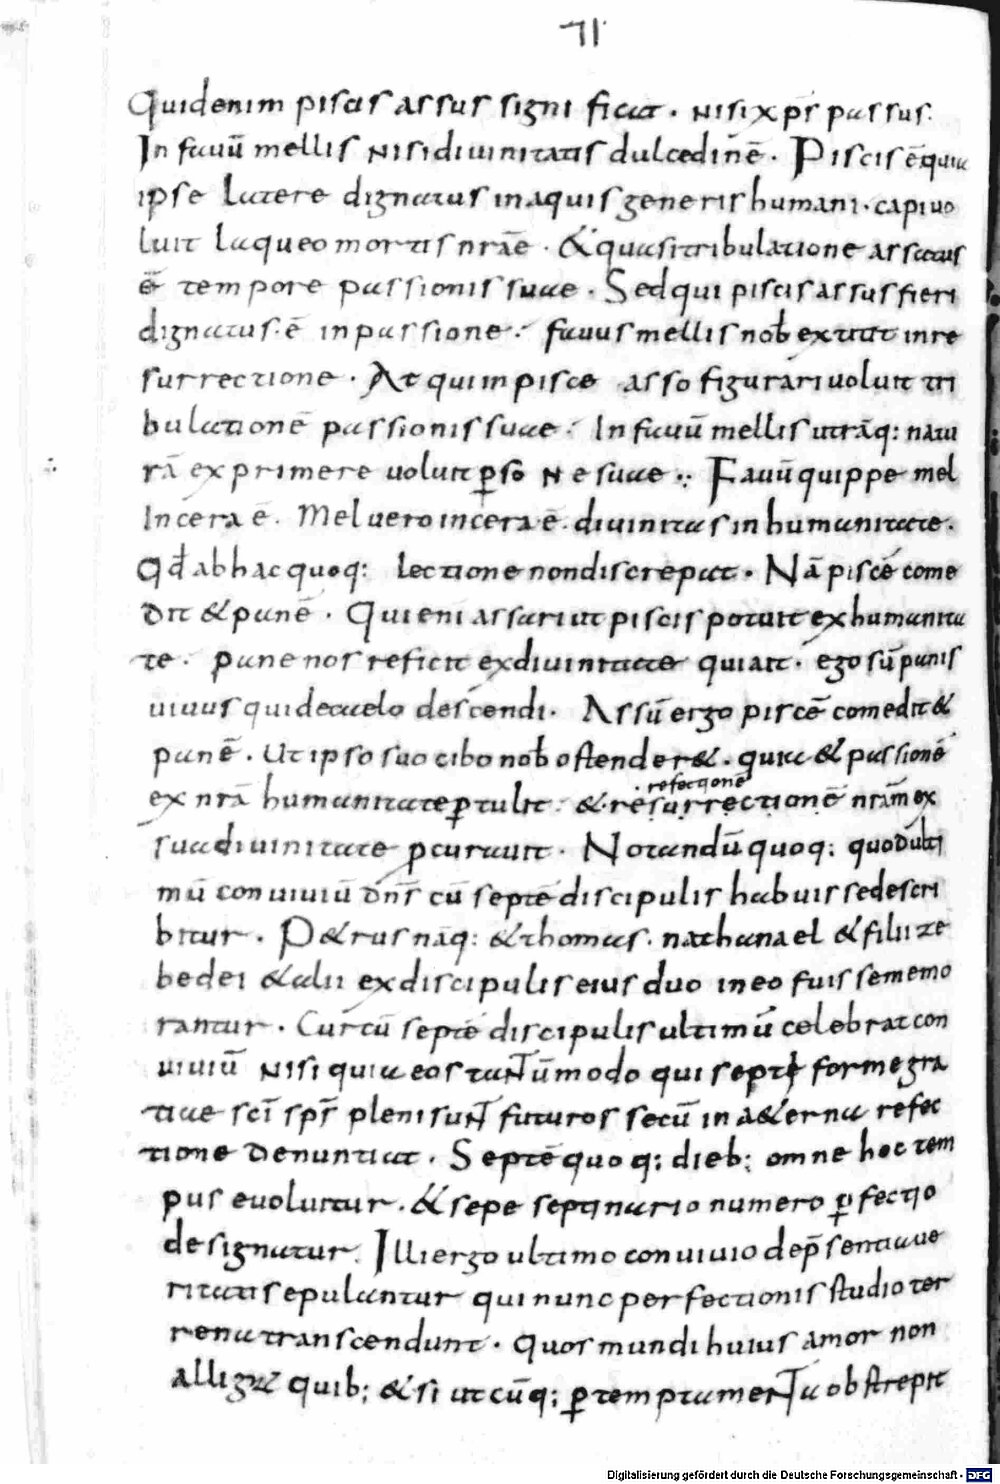 71
Quid enim piscis assus significat · nisi xp̄s passus.
In fauū mellis nisi diuinitatis dulcedinē · Piscis ē quia
ipse latere dignatus in aquis generis humani · capi uo
luit laqueo mortis nr̄ae · & quasi tribulatione assatus
ē tempore passionis suae · Sed qui piscis assus fieri
dignatus · ē in passione · fauus mellis nob̄ extitit in re
surrectione · At qui in pisce asso figurari uoluit tri
bulationē passionis suae · In fauū mellis utrāq: natu
rā exprimere uoluit ꝑsonę suae · Fauū quippe mel
In cera ē · Mel uero in cera ē · diuinitas in humanitate ·
Qd̄ ab hac quoq: lectione non discrepat · Nā piscē come
dit & panē · Qui eni assari ut piscis potuit ex humanita
te · pane nos reficit ex diuinitate qui ait · ego sū panis
uiuus qui de caelo descendi · Assū ergo piscē comedit &
panē · Ut ipso suo cibo nob̄ ostender& · quia & passionē
refectionē
ex nr̄a humanitate ꝑtulit · & resurrectionē nr̄am ex
sua diuinitate ꝓcurauit · Notandū quoq: quod ulti
mū conuiuiū dn̄s cū septē discipulis habuisse descri
bitur · P&rus nāq: & thomas · nathanael & filii ze
bedei & alii ex discipulis eius duo in eo fuisse memo
rantur · Cur cū septē discipulis ultimū celebrat con
uiuiū nisi quia eos tantūmodo qui septē forme gra
tiae sc̄i sp̄s pleni sunt futuros secū in a&erna refec
tione denuntiat · Septē quoq; dieb; omne hoc tem
pus euoluitur · & sepe septinario numero ꝑfectio
designatur. Illi ergo ultimo conuiuio de p̄sentia ue
ritatis epulantur qui nunc perfectionis studio ter
rena transcendunt · Quos mundi huius amor non
allig& quib; & si utcūq; ꝑ temptamenta obstrepit
Digitalisierung gefördert durch die Deutsche Forschungsgemeinschaft - DFG